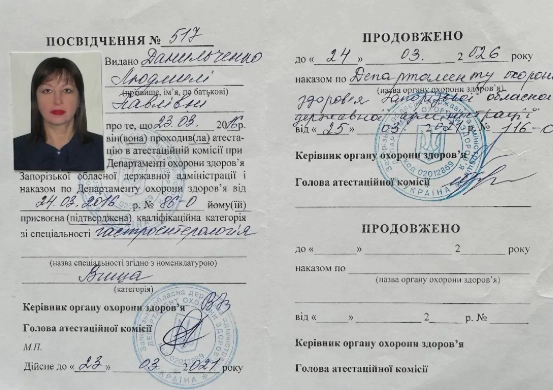 ПОСВІДЧЕННЯ № 517
Видано Данильченко
Людмилі
(прізвище, ім'я, по батькові)
Павлівні
про те, що 23.03. 2016р.
він(вона) проходив(ла) атеста-
цію в атестаційній комісії при
Департаменті охорони здоров'я
Запорізької обласної державної адміністрації і
наказом по Департаменту охорони здоров'я від
24.03.2016 р. № 86-О йому(їй)
присвоєна (підтверджена) кваліфікаційна категорія
зі спеціальності гастроентерологія
(назва спеціальності згідно з номенклатурою)
Вища
(категорія)
Керівник органу охорони здоров'я
Голова атестаційної комісії
М.П.
Дійсне до « 23 » 03 2021 року
ПРОДОВЖЕНО
до « 24 » 03. 2 026 року
наказом по Департаменту охорони
(назва органу охорони здоров'я)
здоров'я Запорізької обласної
державної адміністрації
від « 25 » 03. 2021 № 116-О
Керівник органу охорони здоров'я
Голова атестаційної комісії
УКРАЇНА 02012869
ПРОДОВЖЕНО
до « » 2 року
наказом по
(назва органу охорони здоров'я)
від « » 2 р. №
Керівник органу охорони здоров'я
Голова атестаційної комісії